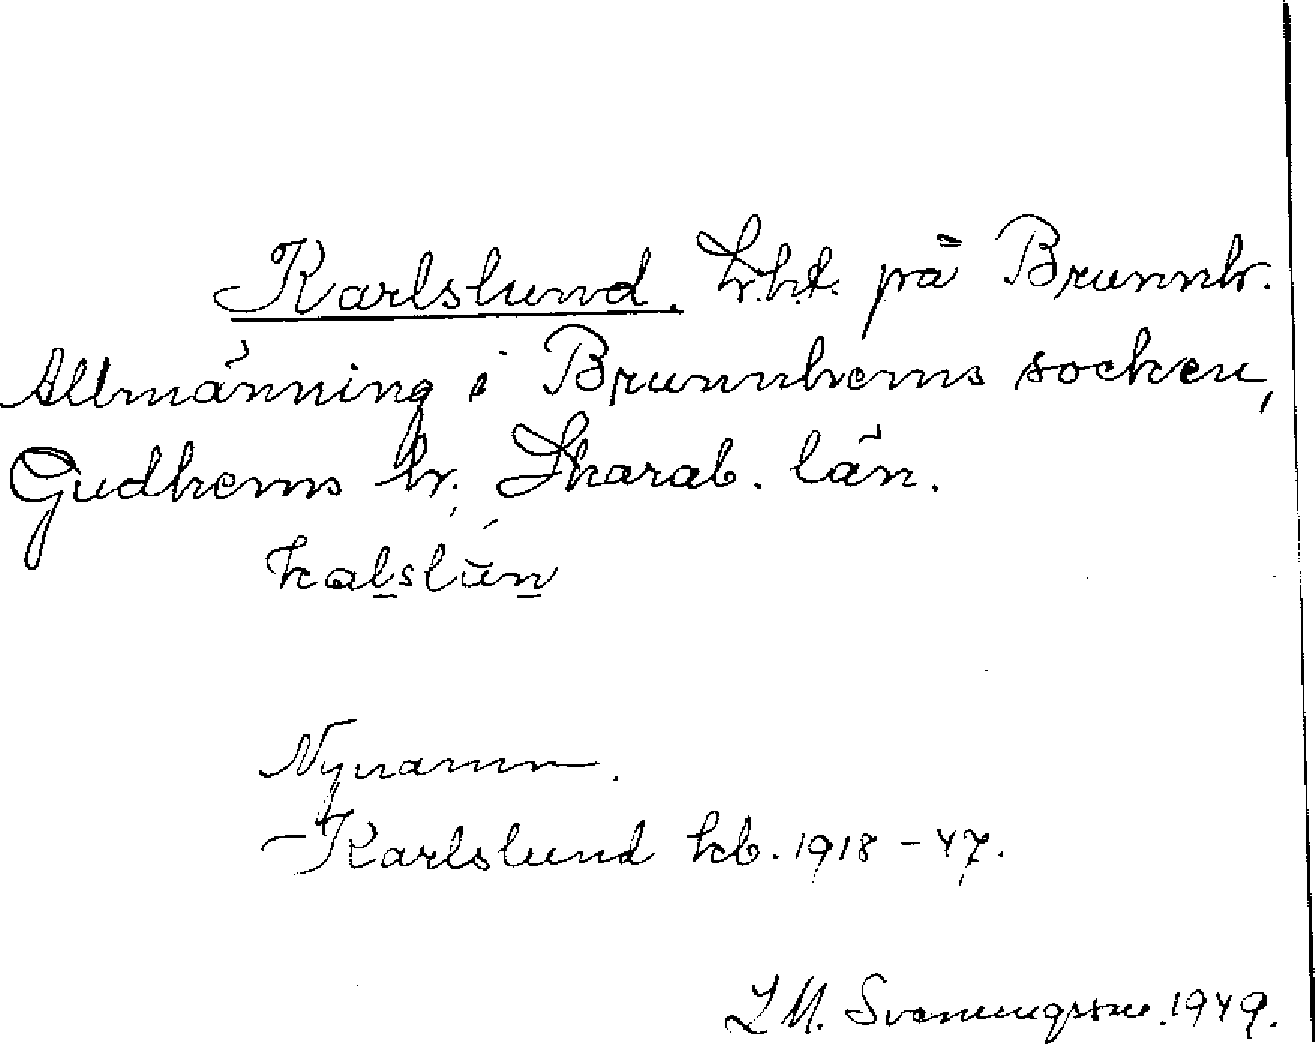 Karlslund. Lht. på Brunnh.
Allmänning i Brunnhems socken,
Gudhems hr. Skarab. län.
kalslun
Nynamn.
Karlslund kb. 1918-47.
L M. Svenungsson. 1949.